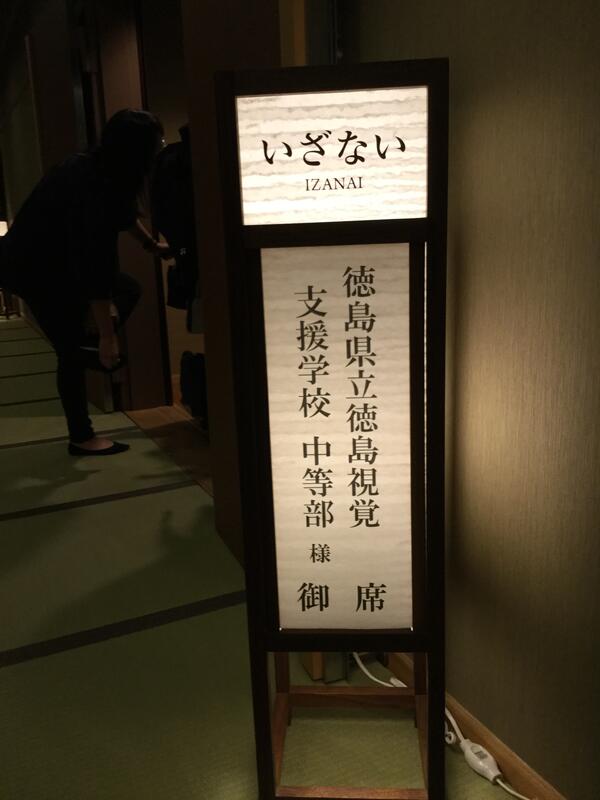 いざない
IZANAI
徳島県立徳島視覚
支援学校 中等部 様
御席